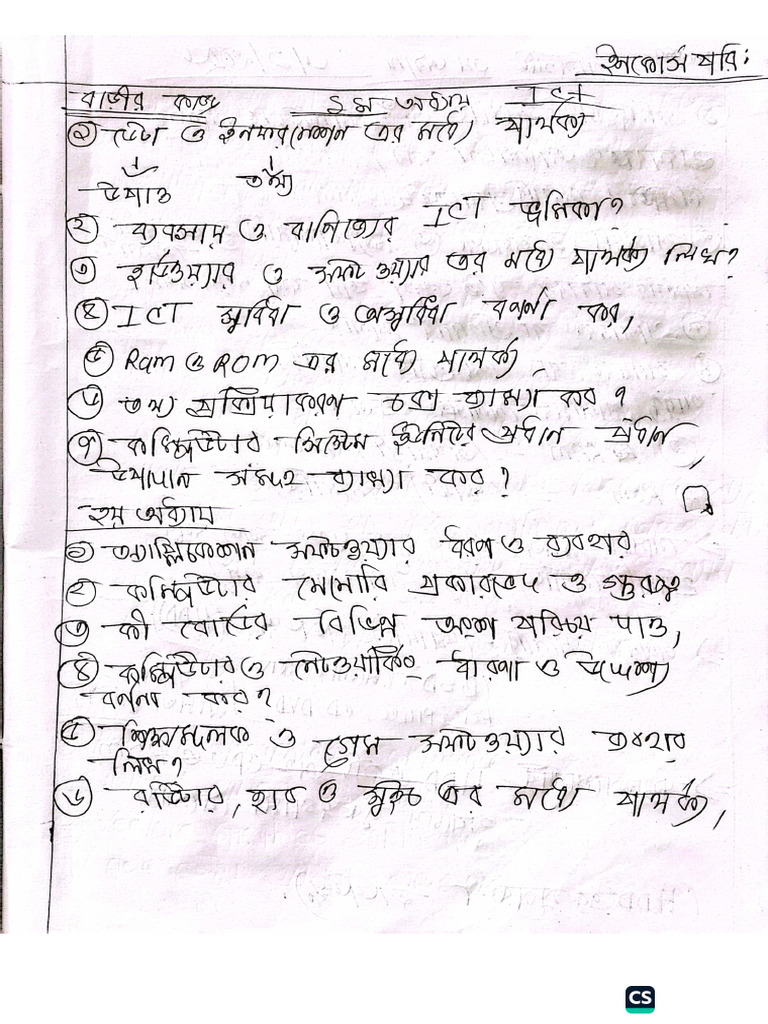 ইনকোর্স পরি:
বাড়ীর কাজ ১ম অধ্যায় ICT
① ডেটা ও ইনফরমেশন এর মধ্যে পার্থক্য
উপাত্ত তথ্য
② ব্যবসায় ও বাণিজ্যের ICT ভূমিকা?
③ হার্ডওয়্যার ও সফটওয়্যার এর মধ্যে পার্থক্য লিখ?
④ ICT সুবিধা ও অসুবিধা বর্ণনা কর,
⑤ Ram ও ROM এর মধ্যে পার্থক্য
⑥ তথ্য প্রক্রিয়াকরণ চক্র ব্যাখ্যা কর?
⑦ কম্পিউটার সিস্টেম ইউনিটের প্রধান প্রধান
উপাদান সমূহ ব্যাখ্যা কর?
২য় অধ্যায়
① অ্যাপ্লিকেশন সফটওয়্যার ধরণ ও ব্যবহার
② কম্পিউটার মেমোরি প্রকারভেদ ও গুরুত্ব?
③ কী বোর্ডের বিভিন্ন অংশ পরিচয় দাও,
④ কম্পিউটার ও নেটওয়ার্কিং ধারণা ও উদ্দেশ্য
বর্ণনা কর?
⑤ শিক্ষামূলক ও গেম সফটওয়্যার ব্যবহার
লিখ?
⑥ রাউটার, হাব ও সুইচ এর মধ্যে পার্থক্য,
CS